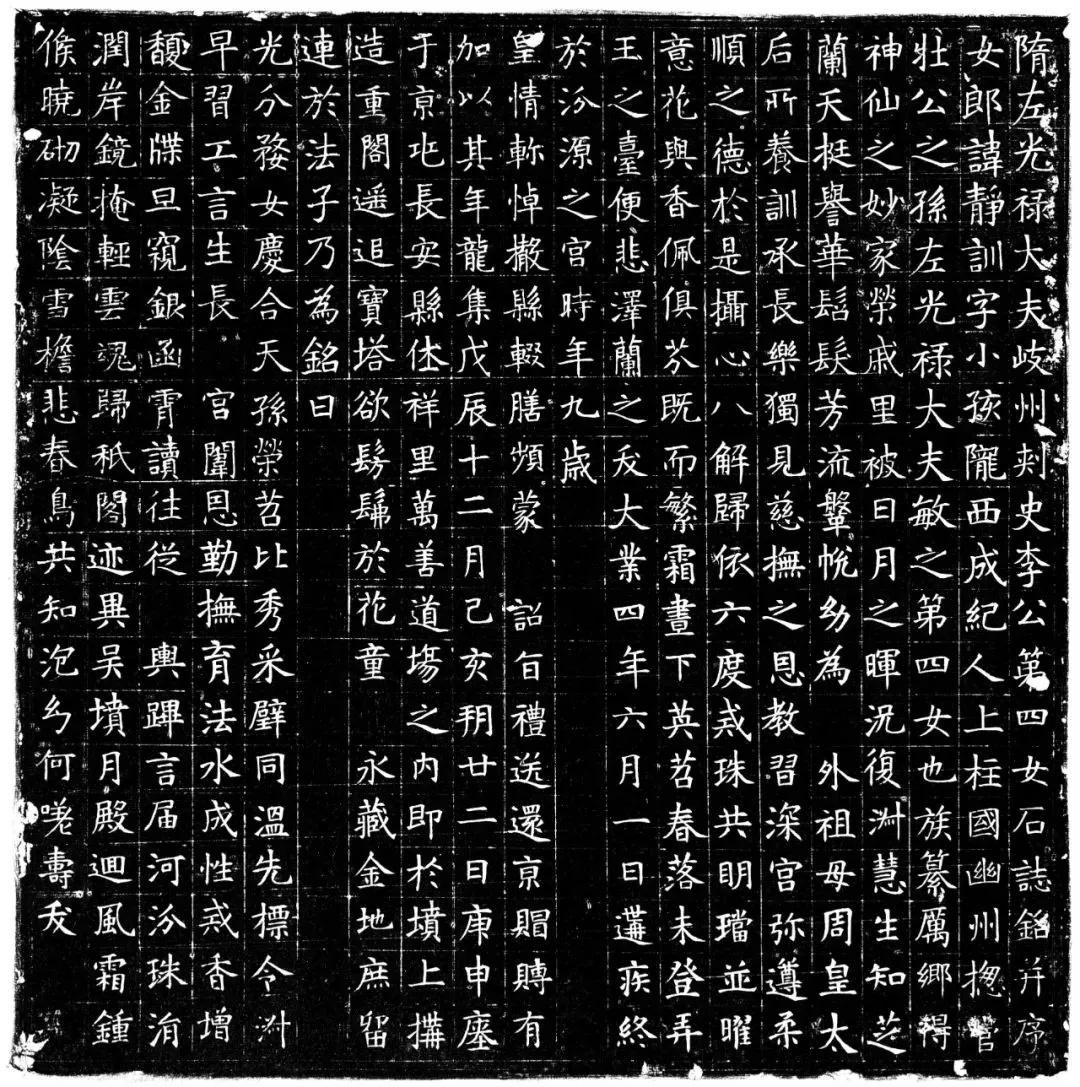 隋左光禄大夫岐州刾史李公第四女石誌銘并序
女郎諱静訓字小孩隴西成紀人上柱國幽州捴管
壮公之孫左光禄大夫敏之第四女也族纂厲郷得
神仙之妙家榮戚里被日月之暉況復淋慧生知芝
蘭天挺譽華髫髮芳流鞶帨㓜為 外祖母周皇太
后所養訓承長樂獨見慈撫之恩教習深宫弥遵柔
順之德於是攝心八解歸依六度戒珠共明璫並曜
意花與香佩俱芬既而繁霜晝下英苕春落未登弄
玉之臺便悲澤蘭之夭大業四年六月一日遘疾終
於汾源之宫時年九歳
皇情軫悼撤縣輟膳頻蒙 詔旨禮送還亰賵賻有
加以其年龍集戊辰十二月己亥朔廿二日庚申瘞
于亰兆長安縣休祥里萬善道塲之内即於墳上搆
造重閣遥追寶塔欲髣髴於花童 永藏金地庶留
連於法子乃為銘曰
光分婺女慶合天孫榮苕比秀采璧同温先標令淋
早習工言生長 宫闈恩勤撫育法水成性戒香増
馥金牒旦窺銀函霄讀往従 輿蹕言届河汾珠涓
潤岸鏡掩輕雲魂歸秖閣迹異吴墳月殿迴風霜鍾
候曉砌凝陰雪檐悲春鳥共知泡幻何嗟壽夭